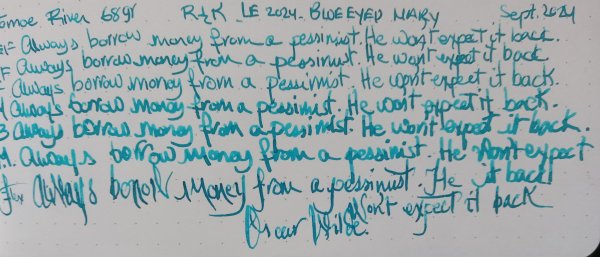 Tomoe River 68gr R&K LE 2024. BLUEEYED MARY Sept. 2024
EF Always borrow money from a pessimist. He won't expect it back.
F Always borrow money from a pessimist. He won't expect it back
Always borrow money from a pessimist. He won't expect it back.
M Always borrow money from a pessimist. He wont expect it back.
B Always borrow money from a pessimist. He won't expect it back.
Always borrow money from a pessimist. He Won't expect
it back
flex Always borrow money from a pessimist. He
Won't expect it back
Oscar Wilde.